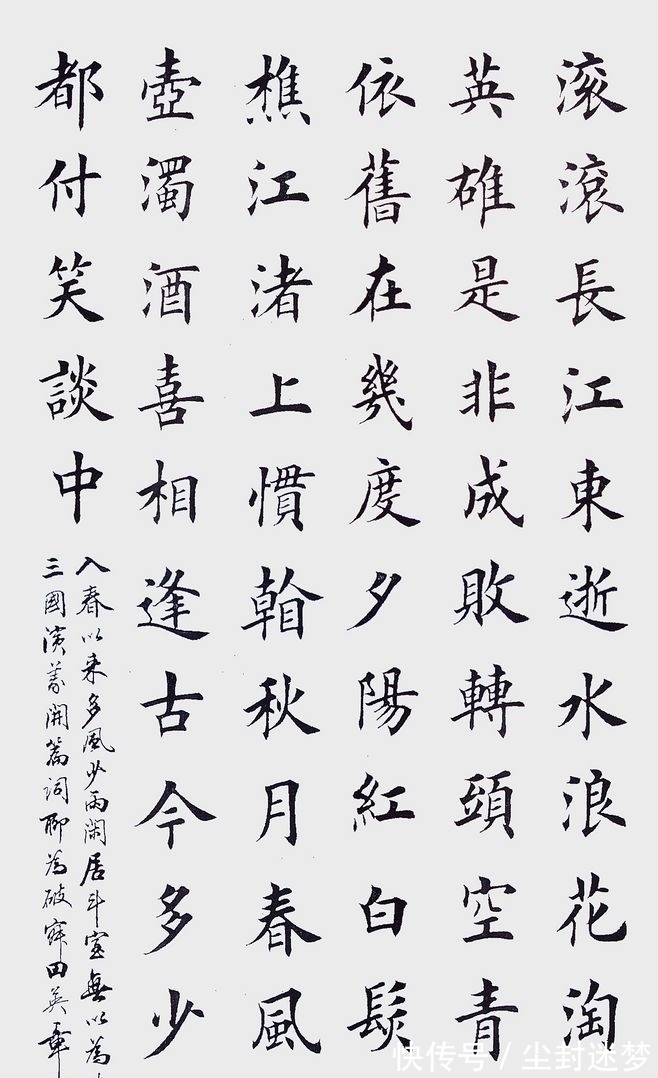 滚滾長江東逝水浪花淘
英雄是非成敗轉頭空青
依舊在幾度夕陽紅白髮
樵江渚上慣看秋月春風
壺濁酒喜相逢古今多少
都付笑談中
入春以来多風少雨閑居斗室無以為
三國演義開篇詞聊為破寂田英章
快传号／尘封迷梦